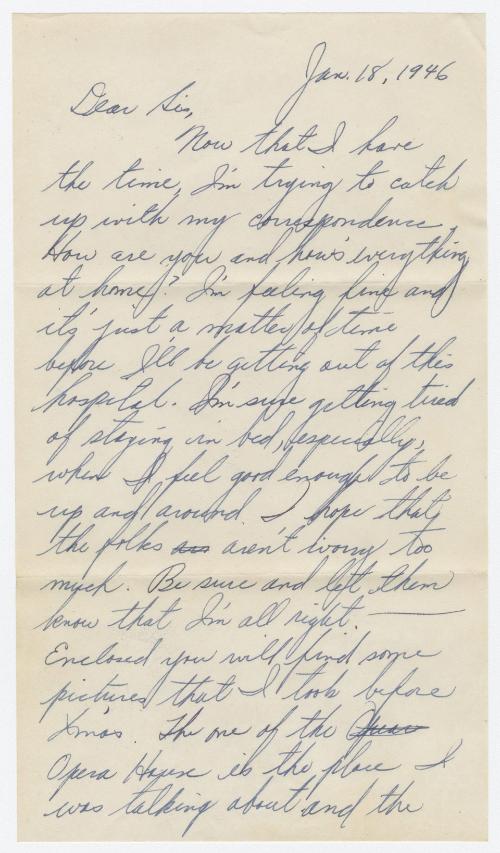 Jan. 18, 1946
Dear Sis,
Now that I have
the time, I'm trying to catch
up with my correspondence.
How are you and how's everything
at home? I'm feeling fine and
it's just a matter of time
before I'll be getting out of this
hospital. I'm sure getting tired
of staying in bed, especially,
when I feel good enough to be
up and around. I hope that
the folks are aren't worry too
much. Be sure and let them
know that I'm all right. —
Enclosed you will find some
pictures that I took before
Xmas. The one of the
Opera House is the place I
was talking about and the